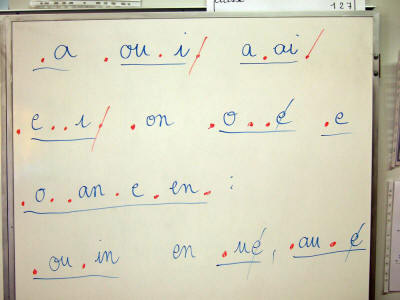 127
.a .ou.i/ a.ai/
.e..i/ .on .o..é .e
.o..an.e.en. :
.ou.in en .ué, .au.é